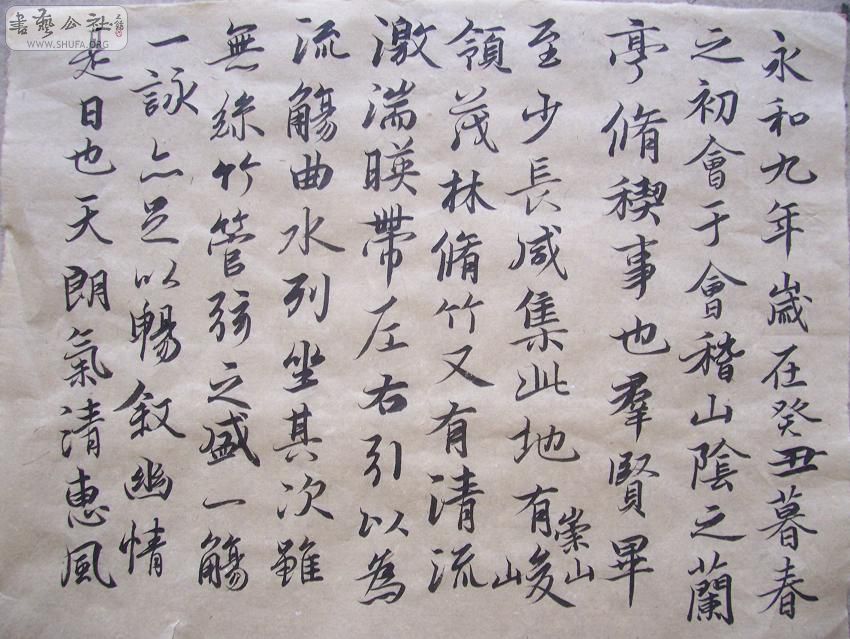 永和九年歲在癸丑暮春
之初會于會稽山陰之蘭
亭脩稧事也羣賢畢
至少長咸集此地有崇山峻
領茂林脩竹又有清流
激湍暎帶左右引以為
流觴曲水列坐其次雖
無絲竹管弦之盛一觴
一詠亦足以暢敘幽情
是日也天朗氣清惠風
書藝公社
WWW.SHUFA.ORG